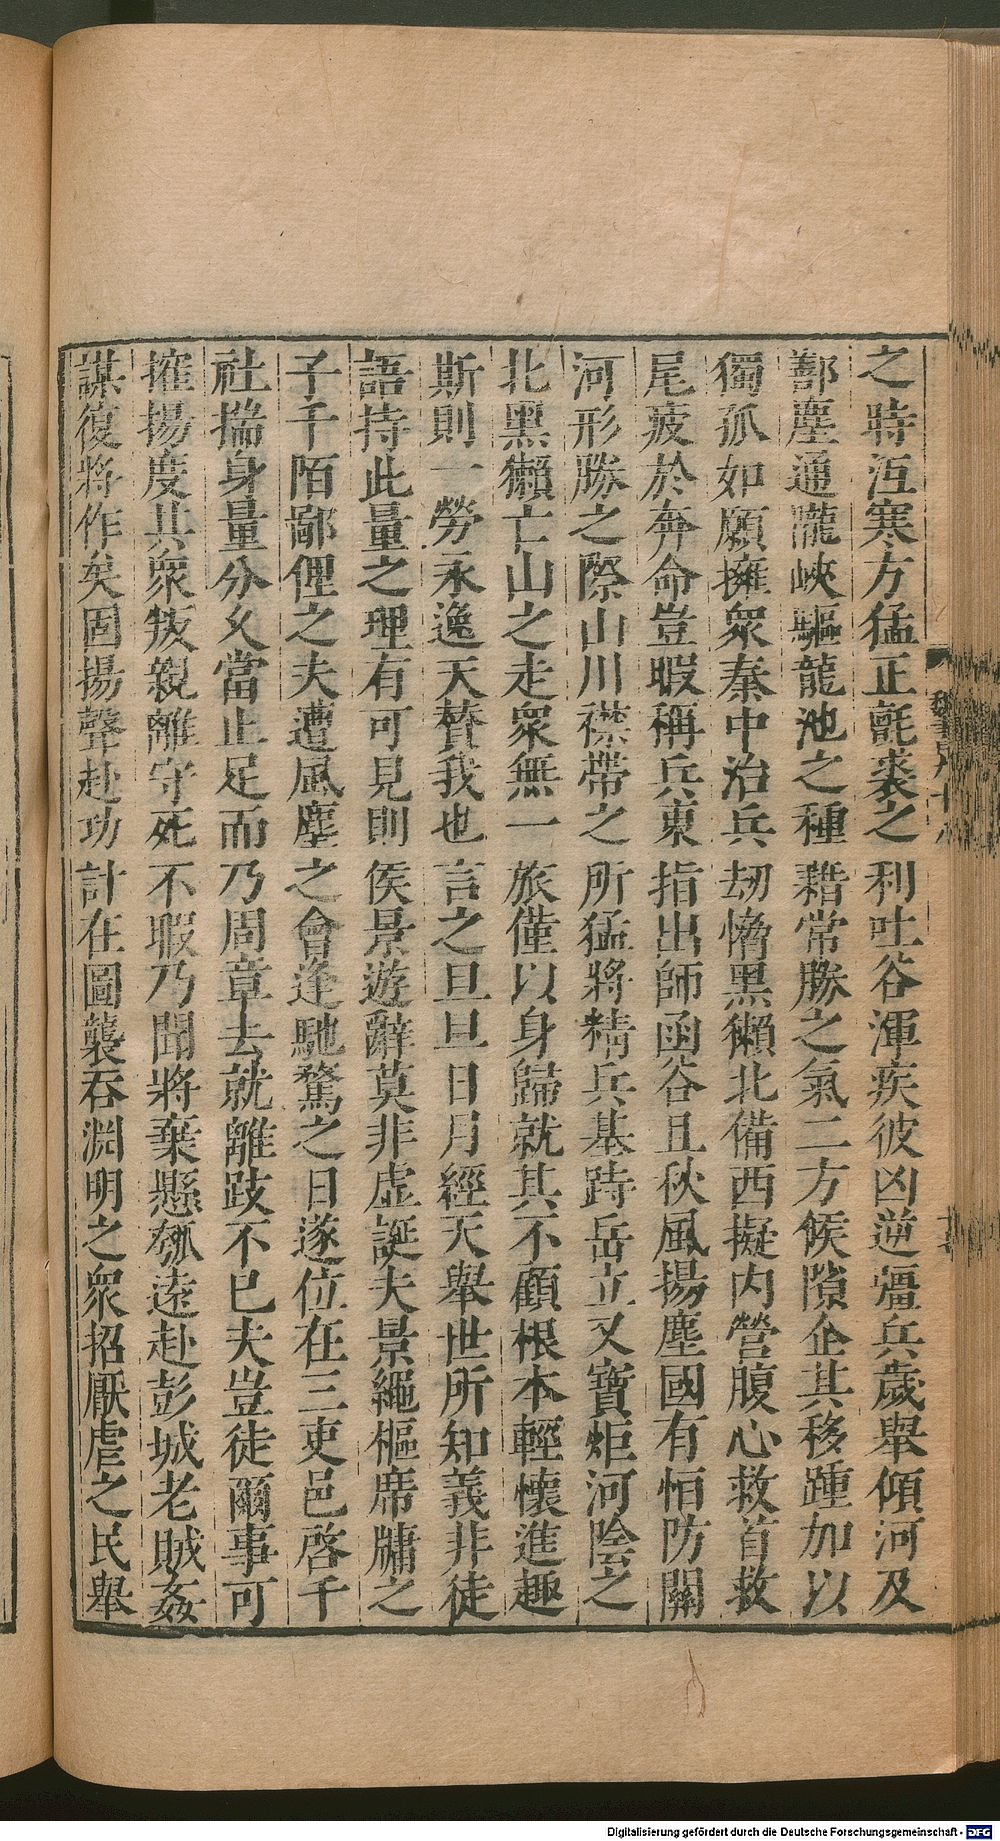 之時沍寒方猛正氈裘之利吐谷渾疾彼凶逆彊兵歲舉傾河及
鄯塵通隴峽驅龍池之種藉常勝之氣二方候隙企其移踵加以
獨孤如願擁衆秦中治兵劫脅黑獺北備西擬內營腹心救首救
尾疲於奔命豈暇稱兵東指出師函谷且秋風揚塵國有恒防關
河形勝之際山川襟帶之所猛將精兵基跱岳立又寶炬河陰之
北黑獺亡山之走衆無一旅僅以身歸就其不顧根本輕懷進趣
斯則一勞永逸天贊我也言之旦旦日月經天舉世所知義非徒
語持此量之理有可見則侯景遊辭莫非虛誕夫景繩樞席牖之
子千陌鄙俚之夫遭風塵之會逢馳騖之日遂位在三吏邑啓千
社揣身量分久當止足而乃周章去就離跂不已夫豈徒爾事可
搉揚度其衆叛親離守死不暇乃聞將棄懸瓠遠赴彭城老賊姦
謀復將作矣固揚聲赴功計在圖襲吞淵明之衆招厭虐之民舉
Digitalisierung gefördert durch die Deutsche Forschungsgemeinschaft - DFG